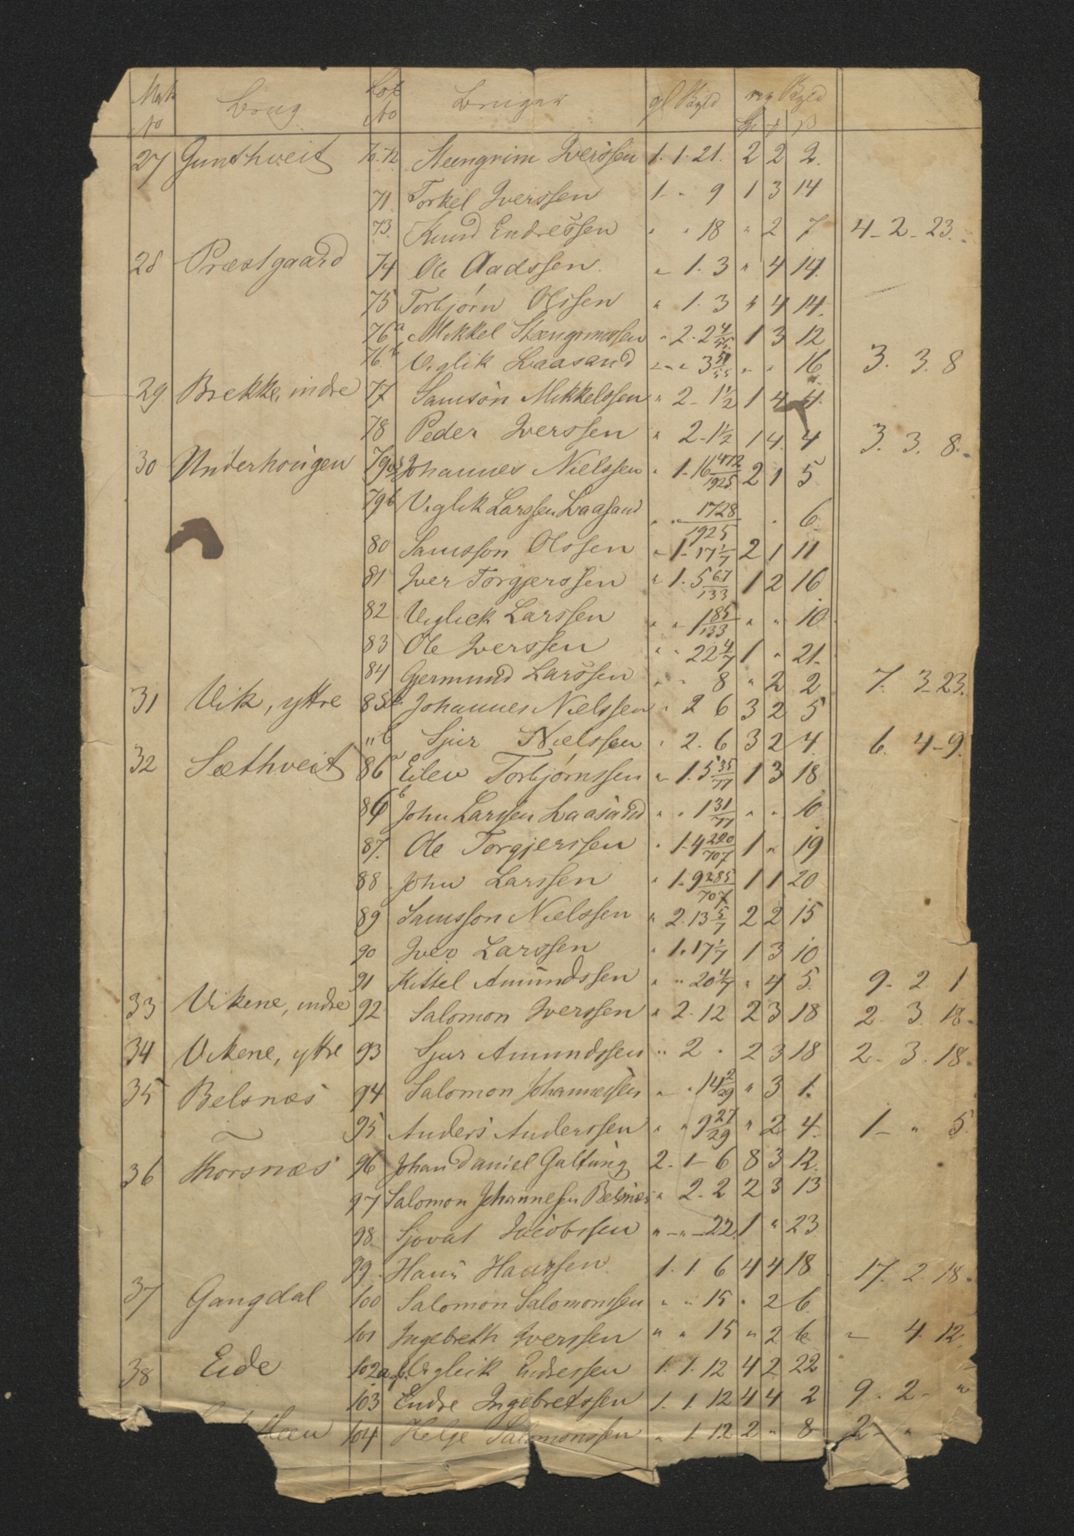 Mark No Brug Løb No Bruger gl Skyld ny Skyld
27 Gunthveit 70.72 Steengrim Iverssen 1. 1. 21. 2 2 2.
71 Torkel Iverssen 1 - " 9 1 3 14
73. Knud Endressen " " 18 " 2 7 4 - 2 - 23.
28 Præstgaard 74 Ole Aadssen. " 1. 3 " 4 14.
75 Torbjørn Olssen " 1. 3 " 4 14.
76a Mikkel 1 3 12
76b Viglik Laasund " " 16 3. 3. 8
29 Brekke, indre 77 Samson Mikkelssen " 2 - 1½ 1 4 4.
78 Peder Iverssen " 2 - 1½ 1 4. 4 3. 3. 8.
30 Underhougen 79a Johannes Nielssen " 1. 16 1412/1925 2 1 5
79b Viglik Larssen Laasund " " 1728/1925 " " 6
80 Samsson Olssen " 1 - 17 1/7 2 1 11
81 Iver Torgjerssen " 1. 5 67/133 1 2 16
82 Viglick Larssen " " 1 85/133 " " 10.
83 Ole Iverssen " " 22 4/7 1 " 21.
84 Gjermund Larssen " " 8 " 2 2 7. 3 - 23.
31 Vik, yttre 85a Johannes Nielssen " 2 6 3 2 5
" b Sjur Nielssen " 2. 6 3 2 4. 6. 4 - 9.
32 Sæthveit 86a Eilev Torbjørnssen " 1. 5 35/77 1 3 18
86b John Larssen Laasund " " 1 31/77 " " 10
87. Ole Torgjerssen " 1. 4 220/707 1 " 19
88 John Larssen " 1. 9 285/707 1 1 20
89 Samsson Nielssen " 2. 13 5/7 2 2 15
90 Iver Larssen " 1. 17 1/7 1 3 10
91 Kittel Amundssen " " 20 4/7 " 4 5. 9. 2 1
33 Vikene, indre 92 Salomon Iverssen " 2. 12 2 3 18 2. 3. 18.
34 Vikene, yttre 93 Sjur Amundssen " 2 " 2 3 18 2. 3. 18.
35 Belsnæs 94 Salomon Johannessen " " 14 2/29 " 3 1.
95 Anders Anderssen " " 9 27/29 " 2. 4. 1 - " 5.
36 Thorsnæs 96 Johan Daniel Galtung 2. 1 - 6 8 3 12.
97 Salomon Johannessen Belsnæs " 2. 2 2 3 13
98 Sjovat Jacobssen " - " - 22. 1 " 23
99 Hans Hanssen. 1. 1 6 4 4 18 17. 2 18.
37 Gangdal 100 Salomon Salomonssen " " 15 " 2 6.
101 Ingebreth Iverssen " " 15 " 2 6. " 4. 12.
38 Eide 102 Vigleik Endressen 1. 1. 12 4 2 22
103 Endre Ingebretssen 1. 1 12 4 4 2 9. 2 - "
104 Helje Salomonssen " 1 12 2 " 8 2 - "